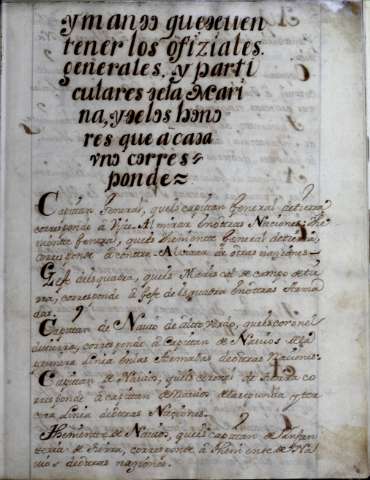 y mando que deven
tener los ofiziales
generales, y parti
culares de la Mari
na, y de los hono
res que a cada
vno corres=
ponde=
Capitan General, que es capitan General de tierra
corresponde à Vize Almirante en otras Naciones: The
niente General, que es Theniente General de tierra,
corresponde à contra Almirante de otras naciones=
Gefe de esquadra, que es Mariscal de campo de tie
rra, corresponde à Gefe de Esquadra en otras Arma
das.
Capitan de Navio de alto bordo, que es coronel
de tierra, corresponde à Capitan de Navios de la
primera Linea en las Armadas de otras Naciones.
Capitan de Navios, que es coronel de tierra co
rresponde à capitan de Navios de la segunda y ter
cera Linea de otras Naciones.
Theniente de Navios, que es capitan de Infan
teria de tierra, corresponde à Theniente de Na
vios de otras naciones.